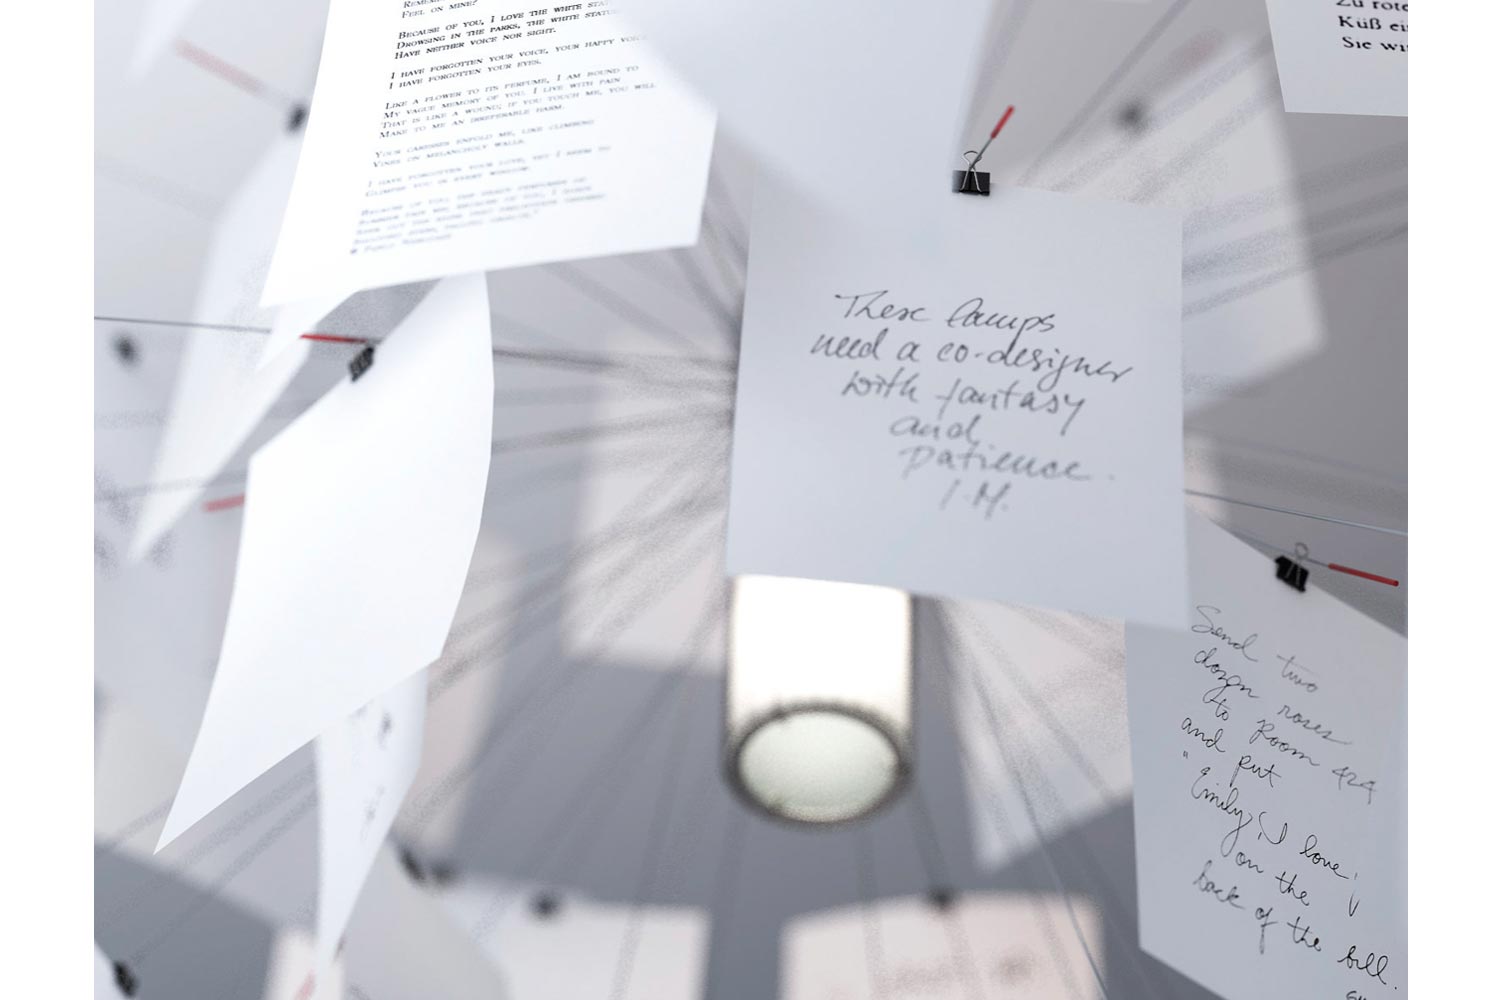 FEEL ON MINE?
BECAUSE OF YOU, I LOVE THE WHITE
DROWSING IN THE PARKS, THE WHITE
HAVE NEITHER VOICE NOR SIGHT.
I HAVE FORGOTTEN YOUR VOICE, YOUR HAPPY
I HAVE FORGOTTEN YOUR EYES.
LIKE A FLOWER TO ITS PERFUME, I AM BOUND TO
MY VAGUE MEMORY OF YOU. I LIVE WITH PAIN
THAT IS LIKE A WOUND; IF YOU TOUCH ME, YOU WILL
MAKE TO ME AN IRREPERABLE HARM.
YOUR CARESSES ENFOLD ME, LIKE CLIMBING
VINES ON MELANCHOLY WALLS.
I HAVE FORGOTTEN YOUR LOVE, YET I SEEM TO
GLIMPSE YOU IN EVERY WINDOW.
Zu
Küß
Sie
These lamps
need a co-designer
with fantasy
and
patience.
I.M.
Send two
dozen roses
to Room 424
and put
"Emily, I love
on the
back of the bill.